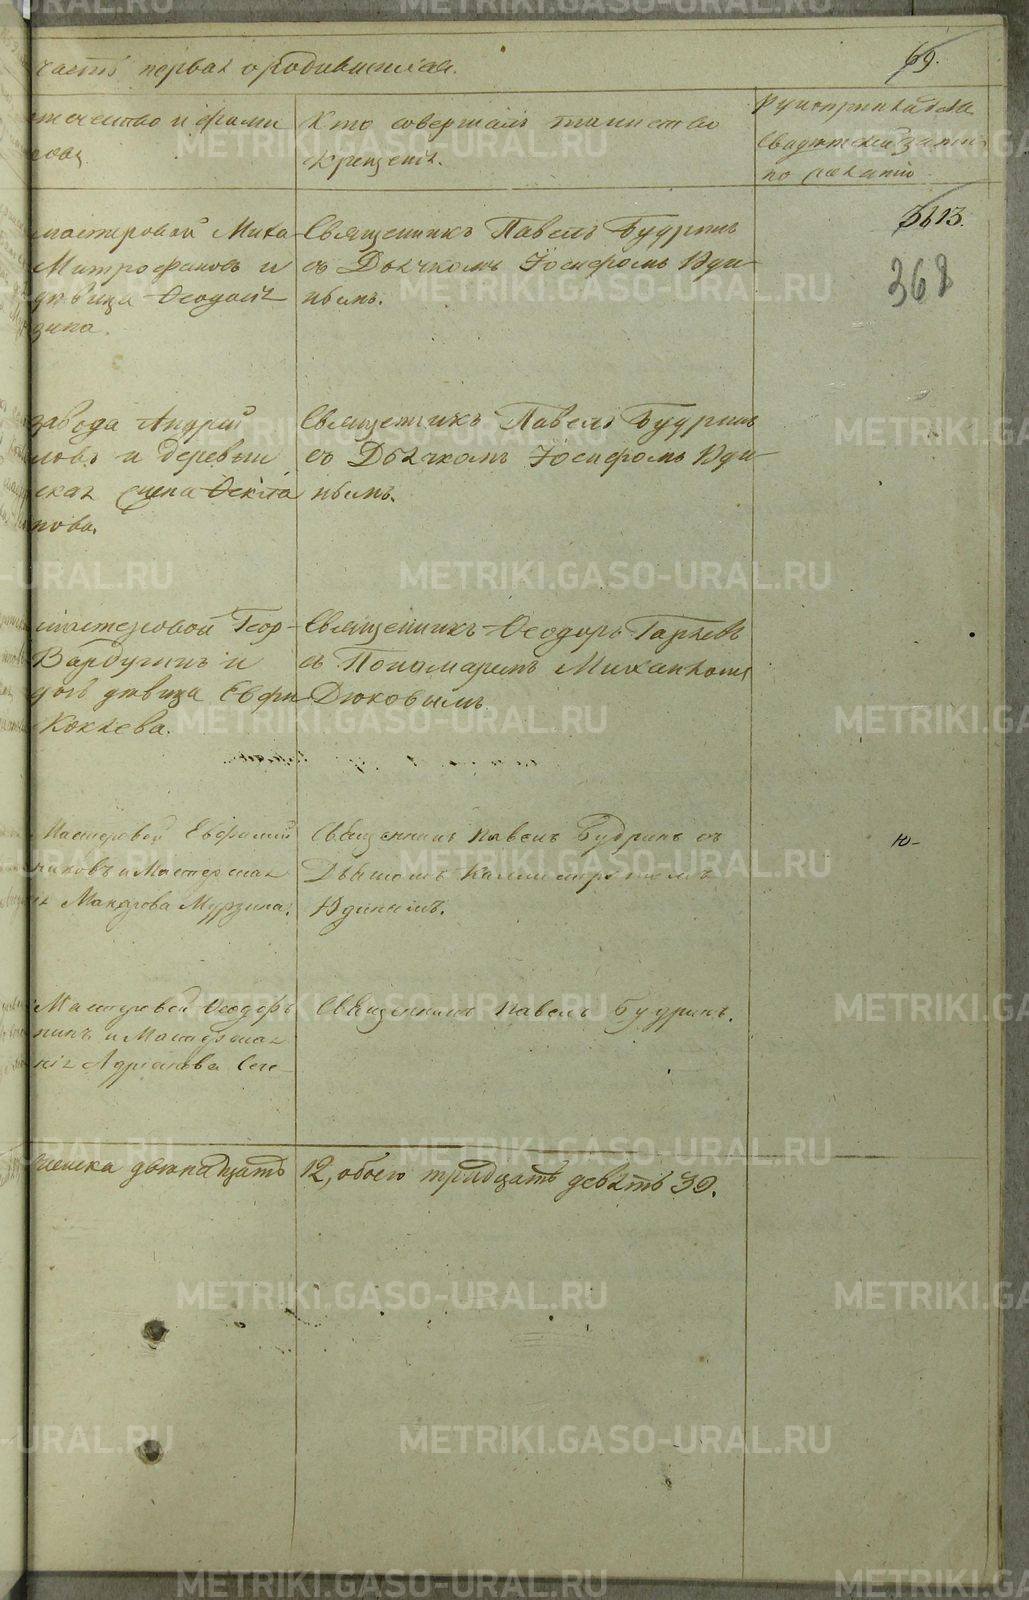 часть первая о родившихся.
69.
отчество и фами
Кто совершалъ таинство
крещенія.
по желанію.
мастеровой Миха
Митрофановъ и
дѣвица Ѳеодосія
зина.
Священникъ Павелъ Будринъ
съ Дьячкомъ Іосифомъ Юди-
нымъ.
3613.
368
завода Андрей
ловъ и деревни
ская Ѳекла
нова.
Священникъ Павелъ Будринъ
съ Дьячкомъ Іосифомъ Юди-
нымъ.
мастеровой Геор-
Вардугинъ и
дѣвица Евфи
Кокаева.
Священникъ Ѳеодоръ Гаряевъ
съ Пономаремъ Михаиломъ
Дюковымъ.
Мастеровой Евфимій
никовъ и Мастерская
Макарова Мурзина.
Священникъ Павелъ Будринъ съ
Дьячкомъ Каллистратомъ
Юдинымъ.
Ю-
Мастеровой Ѳеодоръ
нинъ и Мастерская
Адріанова
Священникъ Павелъ Будринъ.
женска двѣнадцать
12, обоего тридцать девять 39.
METRIKI.GASO-URAL.RU